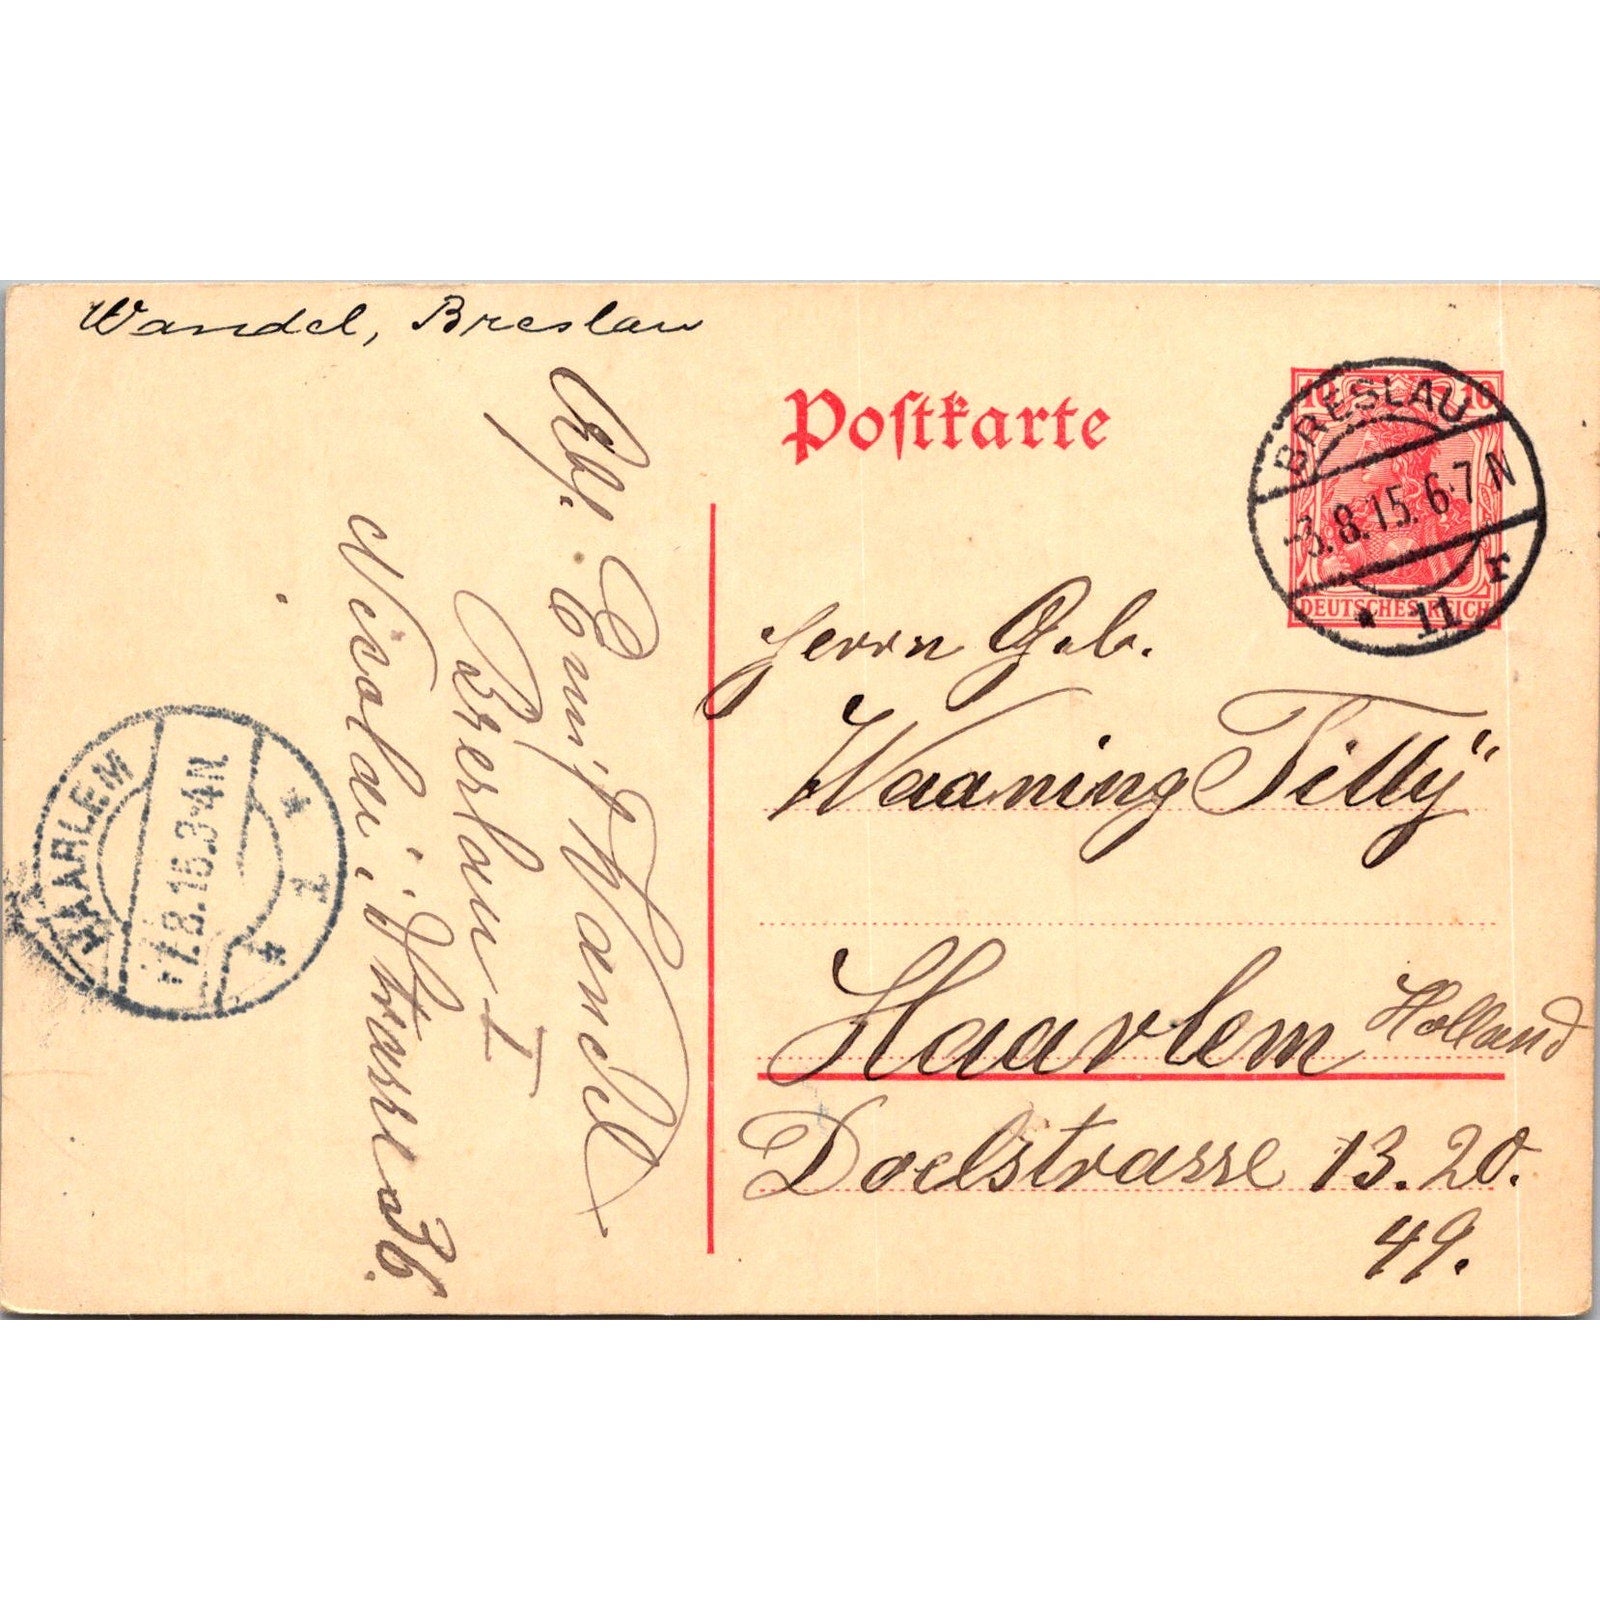 Wandel, Breslau
Postkarte
10 10
DEUTSCHES REICH
BRESLAU
-3.8.15. 6-7 N
* 11 r
Abs. Emil Wandel
Breslau I
Nicolai Strasse 36.
HAARLEM
-7.8.15. 3-4N
* 1 *
Herrn Geb.
Waaning Tillÿ
Haarlem Holland
Doelstrasse 13. 20.
49.